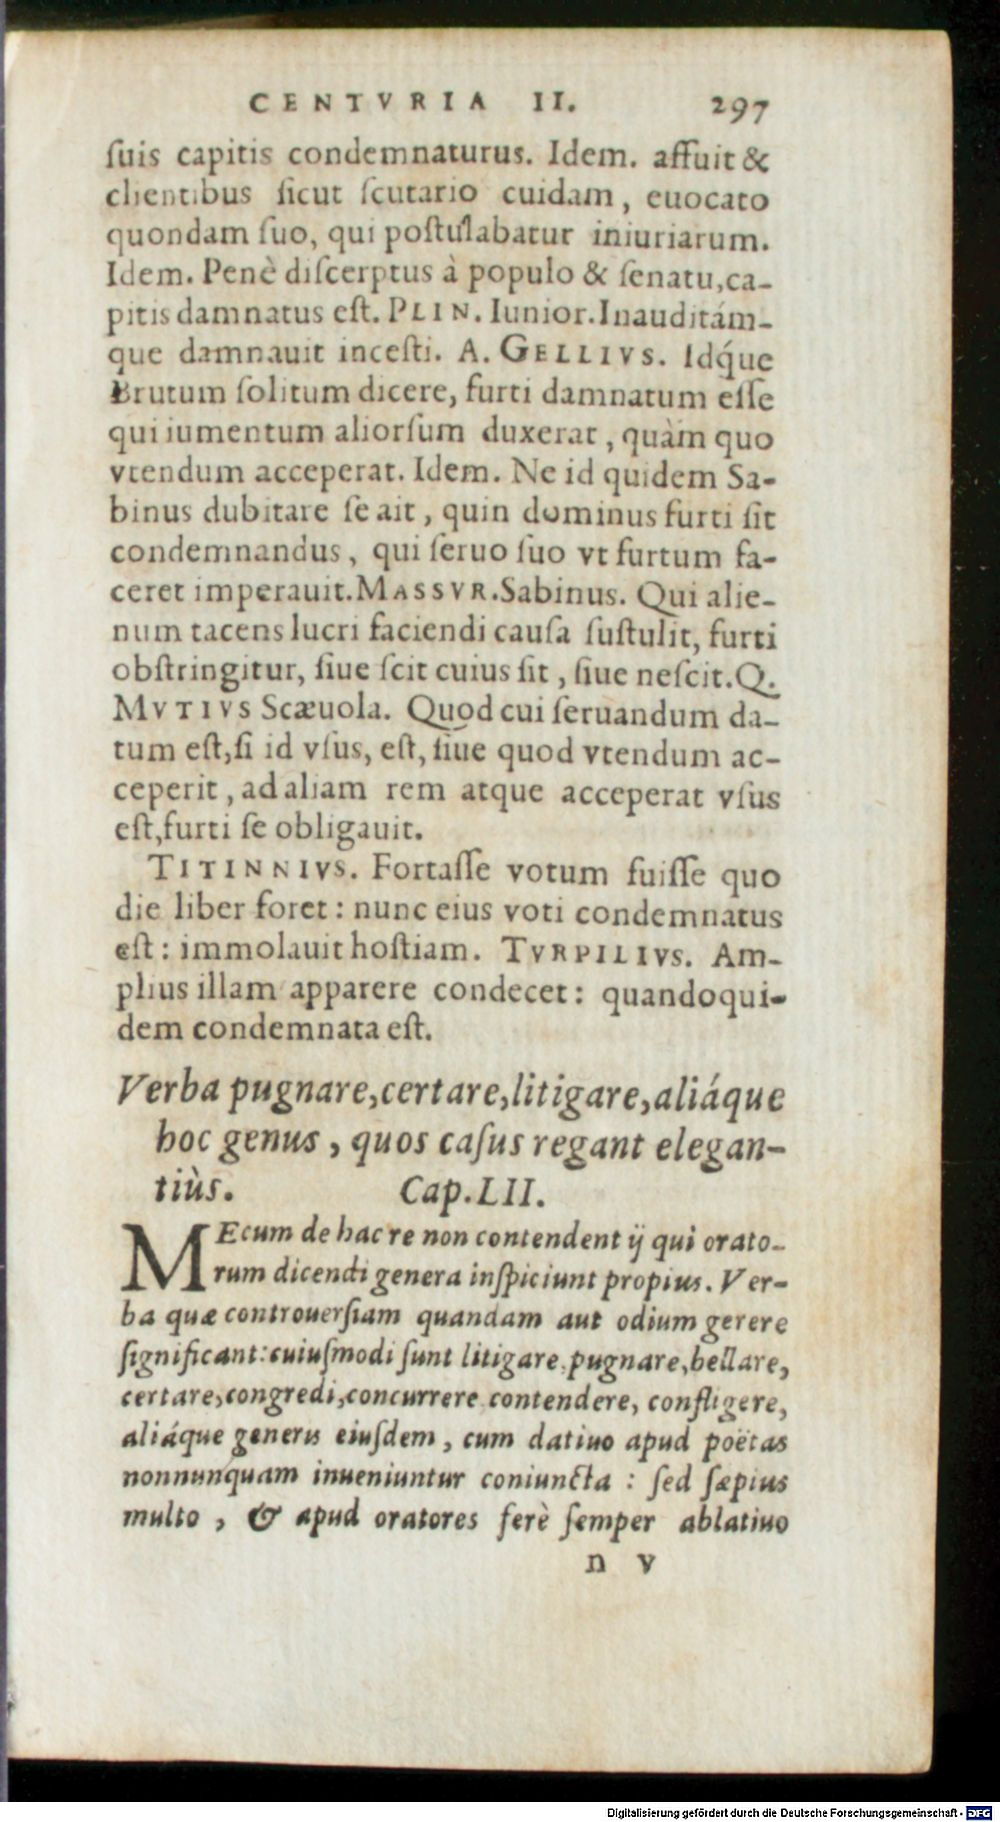 CENTVRIA II. 297
ſuis capitis condemnaturus. Idem. affuit &
clientibus ſicut ſcutario cuidam, euocato
quondam ſuo, qui poſtulabatur iniuriarum.
Idem. Penè diſcerptus à populo & ſenatu, ca-
pitis damnatus eſt. PLIN. Iunior. Inauditám-
que damnauit inceſti. A. GELLIVS. Idq́ue
Brutum ſolitum dicere, furti damnatum eſſe
qui iumentum aliorſum duxerat, quàm quo
vtendum acceperat. Idem. Ne id quidem Sa-
binus dubitare ſe ait, quin dominus furti ſit
condemnandus, qui ſeruo ſuo vt furtum fa-
ceret imperauit. MASSVR. Sabinus. Qui alie-
num tacens lucri faciendi cauſa ſuſtulit, furti
obſtringitur, ſiue ſcit cuius ſit, ſiue neſcit. Q.
MVTIVS Scæuola. Quod cui ſeruandum da-
tum eſt, ſi id vſus, eſt, ſiue quod vtendum ac-
ceperit, ad aliam rem atque acceperat vſus
eſt, furti ſe obligauit.
TITINNIVS. Fortaſſe votum fuiſſe quo
die liber foret: nunc eius voti condemnatus
eſt: immolauit hoſtiam. TVRPILIVS. Am-
plius illam apparere condecet: quandoqui-
dem condemnata eſt.
Verba pugnare, certare, litigare, aliáque
hoc genus, quos caſus regant elegan-
tiùs. Cap. LII.
MEcum de hac re non contendent ij qui orato-
rum dicendi genera inſpiciunt propius. Ver-
ba quæ controuerſiam quandam aut odium gerere
ſignificant: cuiuſmodi ſunt litigare, pugnare, bellare,
certare, congredi, concurrere contendere, confligere,
aliáque generis eiuſdem, cum datiuo apud poëtas
nonnunquam inueniuntur coniuncta: ſed ſæpius
multo, & apud oratores ferè ſemper ablatiuo
n v
Digitalisierung gefördert durch die Deutsche Forschungsgemeinschaft - DFG